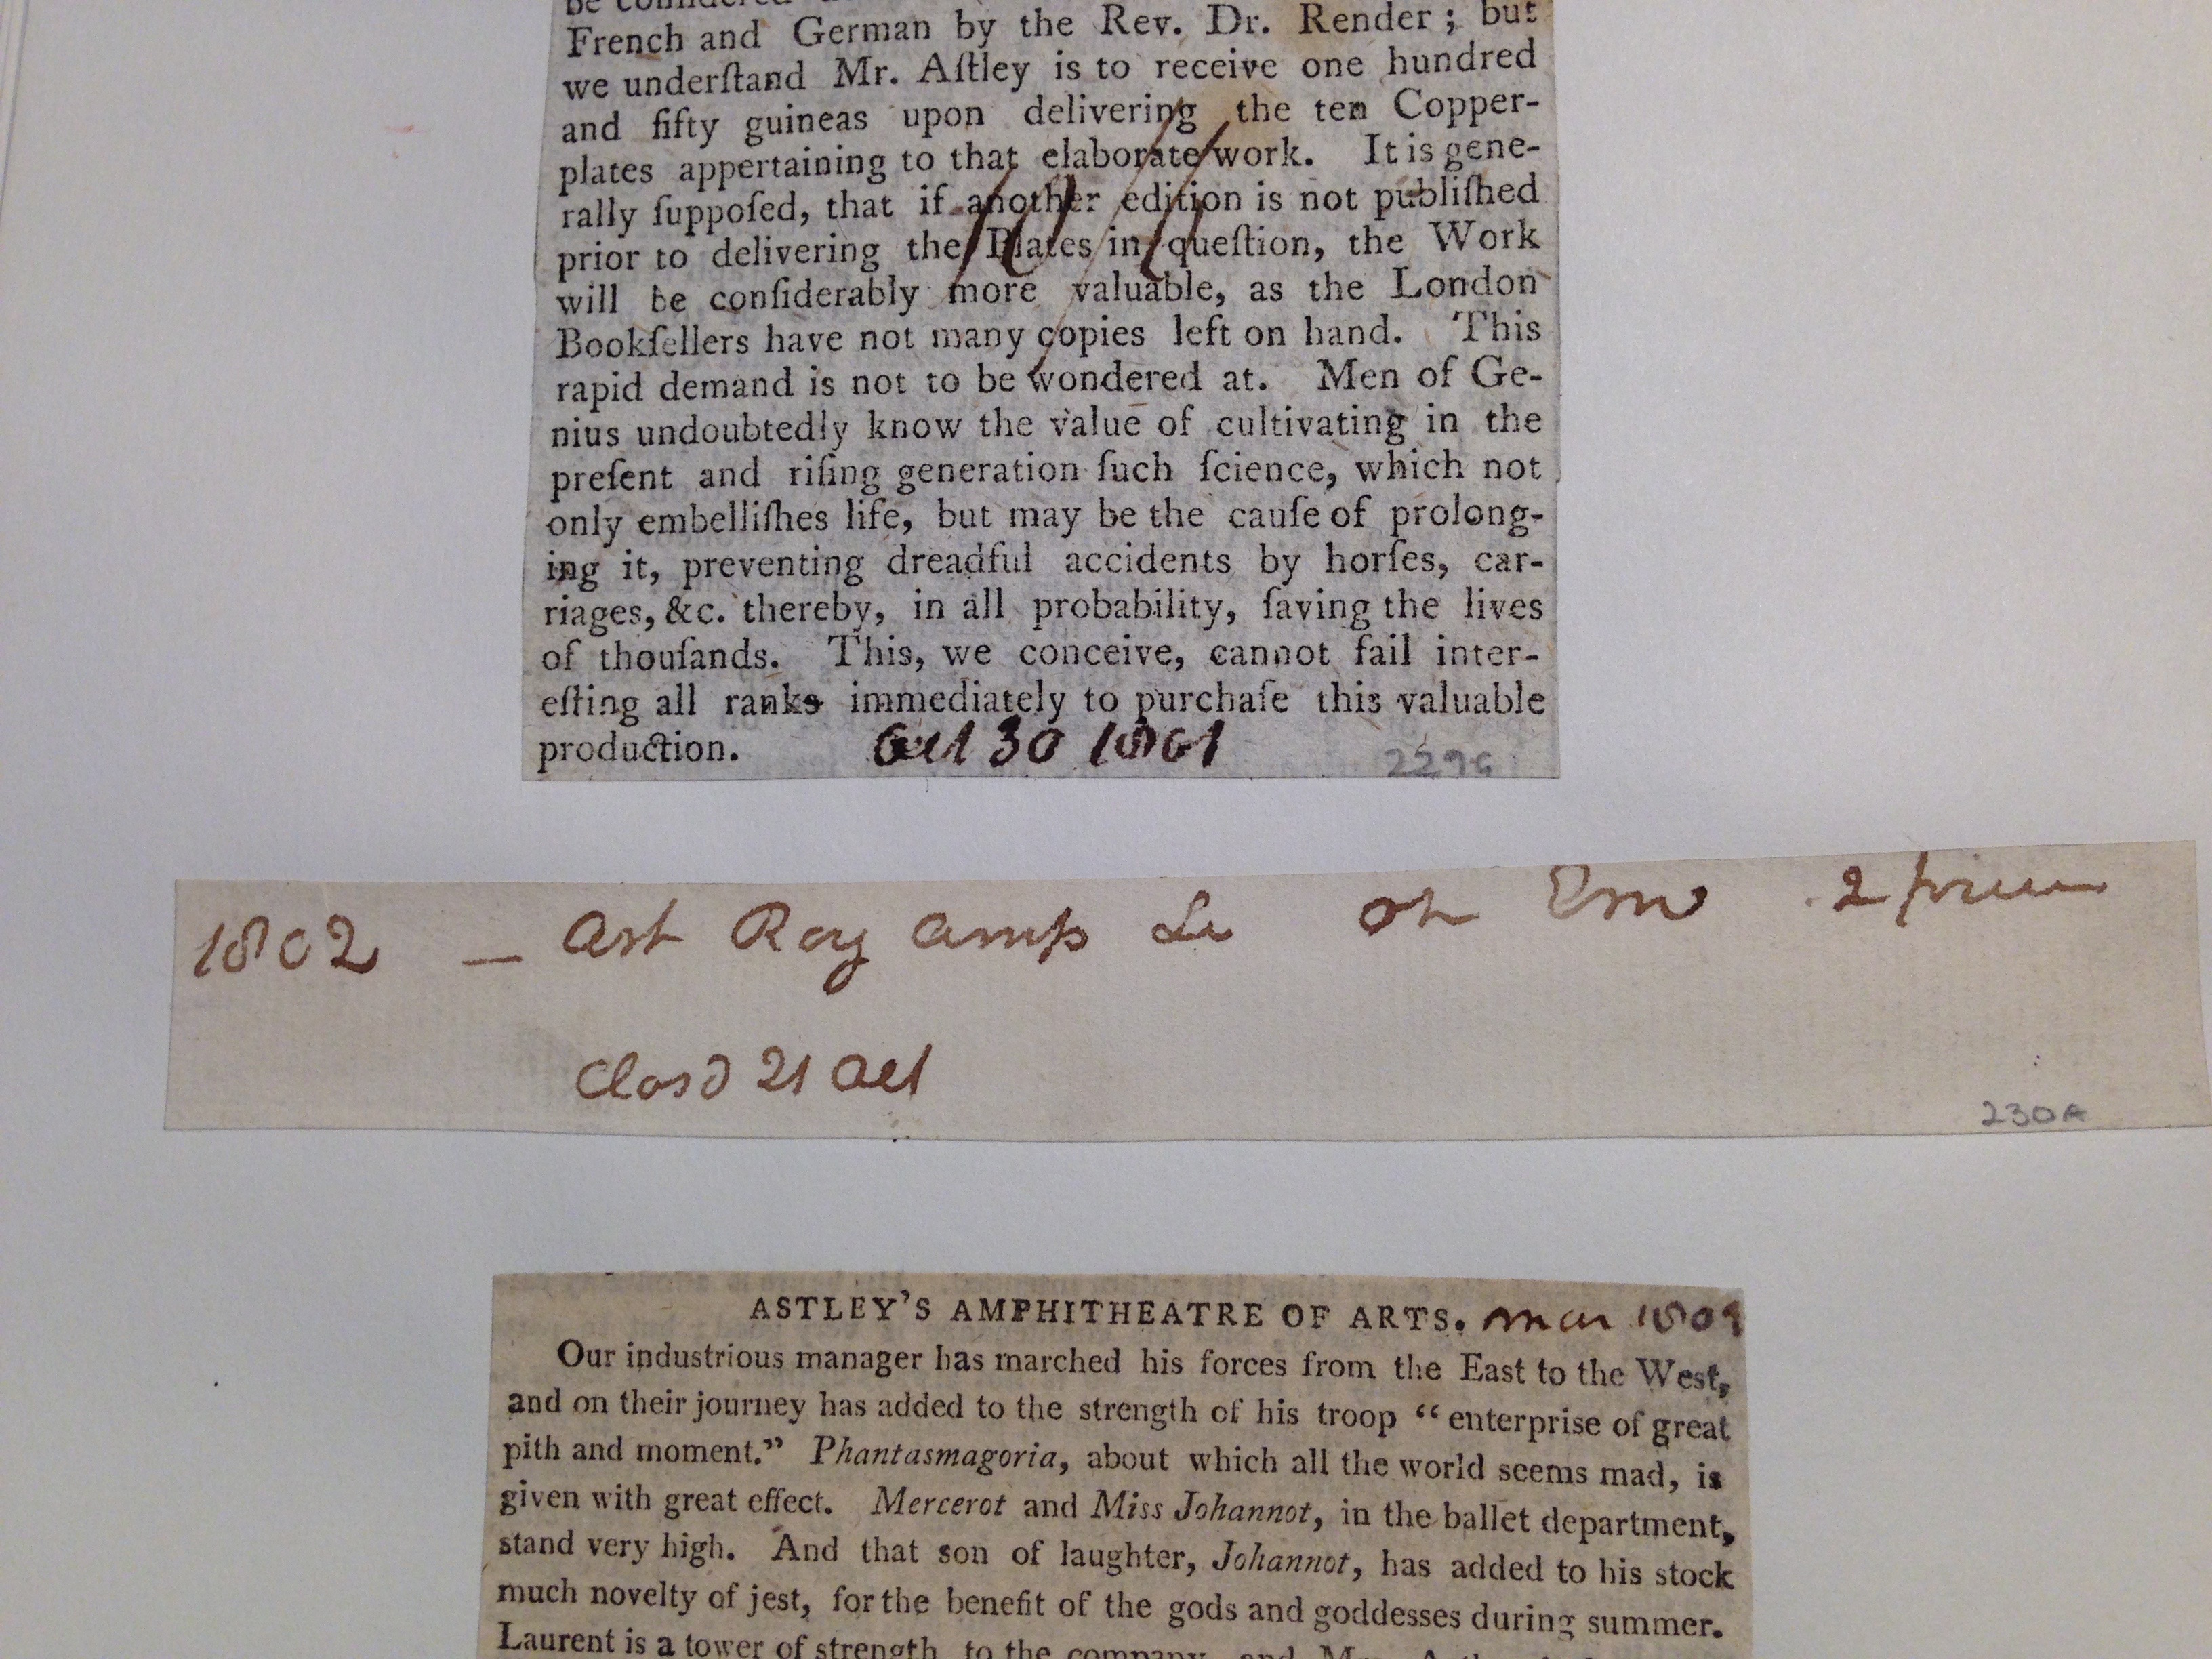 French and German by the Rev. Dr. Render; but
we underſtand Mr. Aſtley is to receive one hundred
and fifty guineas upon delivering the ten Copper-
plates appertaining to that elaborate work. It is gene-
rally ſuppoſed, that if another edition is not publiſhed
prior to delivering the Plates in queſtion, the Work
will be conſiderably more valuable, as the London
Bookſellers have not many copies left on hand. This
rapid demand is not to be wondered at. Men of Ge-
nius undoubtedly know the value of cultivating in the
preſent and riſing generation ſuch ſcience, which not
only embelliſhes life, but may be the cauſe of prolong-
ing it, preventing dreadful accidents by horſes, car-
riages, &c. thereby, in all probability, ſaving the lives
of thouſands. This, we conceive, cannot fail inter-
eſting all ranks immediately to purchaſe this valuable
production. Oct 30 1801
1802 — Ast Roy amp 2
Closd 21 Oct
230A
ASTLEY'S AMPHITHEATRE OF ARTS.
Our industrious manager has marched his forces from the East to the West,
and on their journey has added to the strength of his troop “enterprise of great
pith and moment.” Phantasmagoria, about which all the world seems mad, is
given with great effect. Mercerot and Miss Johannot, in the ballet department,
stand very high. And that son of laughter, Johannot, has added to his stock
much novelty of jest, for the benefit of the gods and goddesses during summer.
Laurent is a tower of strength to the company, and